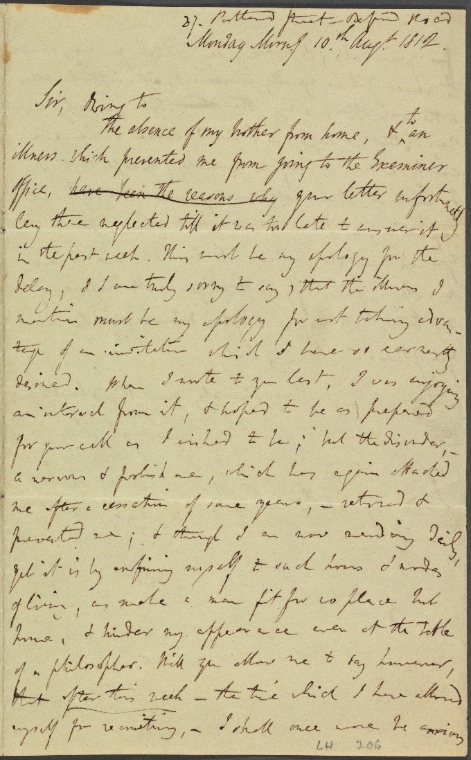 37. Portland Street - Oxford Road
Monday Morng 10.th Augt. 1812.
Sir, Owing to
the absence of my brother from home, & to an
illness which prevented me from going to the Examiner
office, have been the reasons why your letter unfortunate
ly there neglected till it was too late to answer it
in the past week. This must be my apology for the
delay, & I am truly sorry to say, that the illness I
mention must be my apology for not taking advan-
tage of an invitation which I have so earnestly
desired. When I wrote to you last, I was enjoying
an interval from it, & hoped to be as prepared
for your call as I wished to be; but the disorder, -
a nervous & one, which has again attacked
me after a cessation of some years, - returned &
prevented me; & though I am now mending daily,
yet it is by confining myself to such hours & modes
of living, as make a man fit for no place but
home, & hinder my appearance even at the table
of a philosopher. Will you allow me to say however,
that after this week - the time which I have allowed
myself for recruiting, - I shall once more be anxious
LH 206